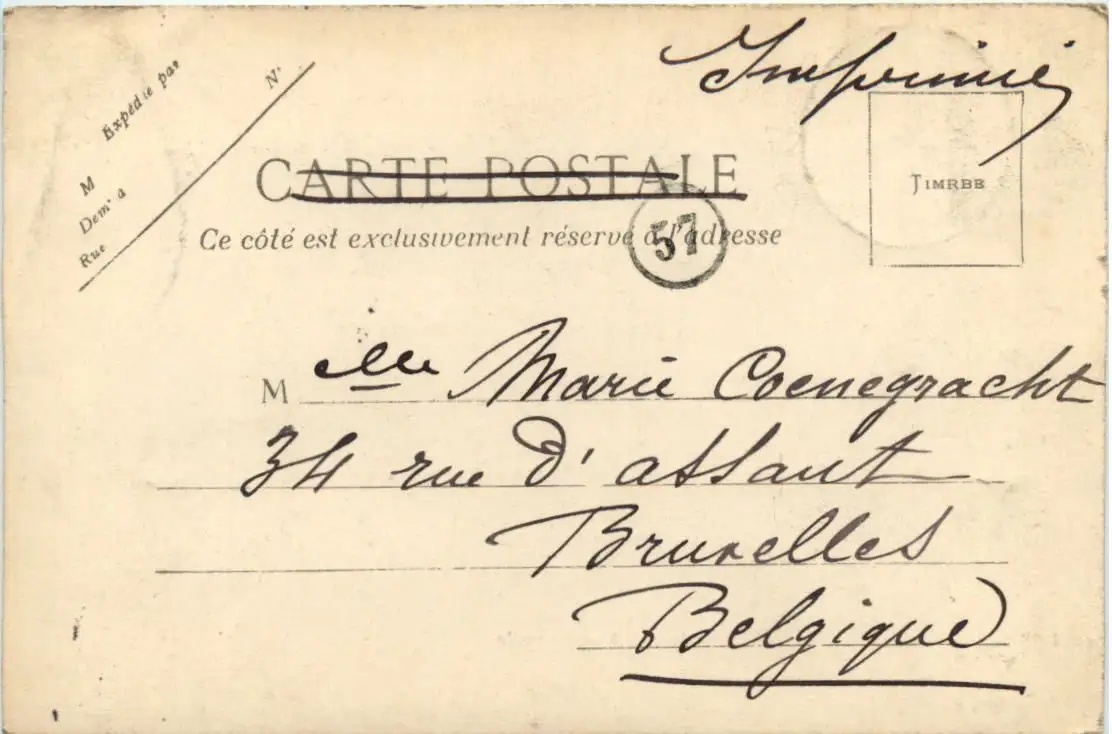 Imprimé
Expédié par
M
Demt a
Rue
N°
CARTE POSTALE
TIMRBE
Ce côté est exclusivement réservé à l'adresse
57
Melle Marie Coenegracht
34 rue d'assaut
Bruxelles
Belgique